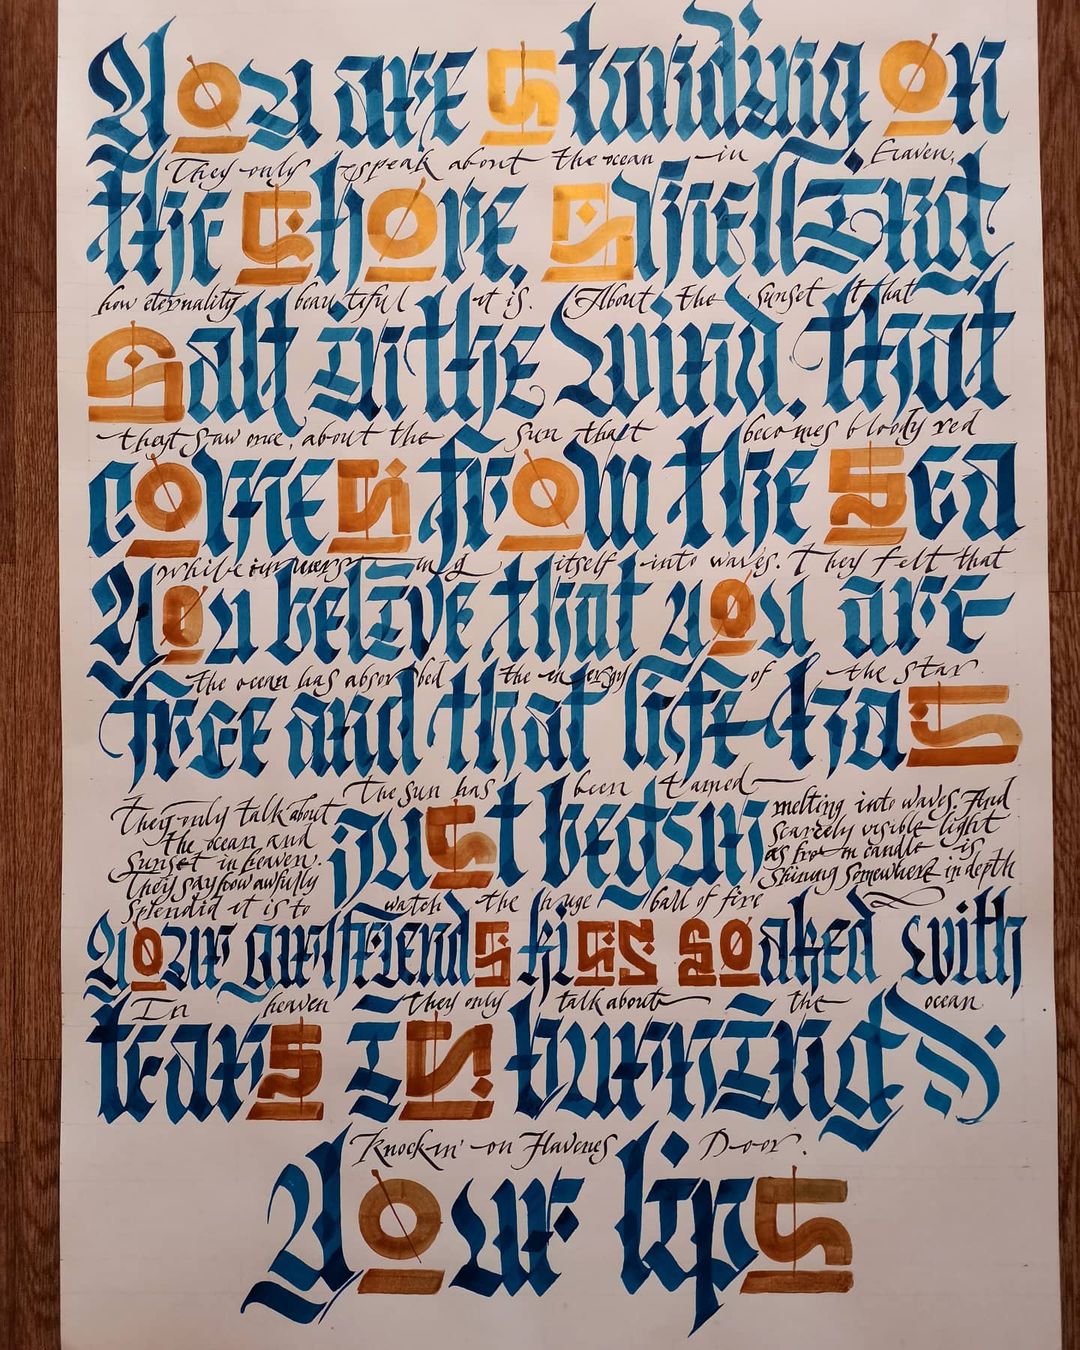 You are standing on
They only speak about the ocean in Heaven,
the shore, smelling
how eternality beautiful it is. About the sunset that
salt in the wind, that
they saw once, about the sun that becomes bloody red
comes from the sea
while immersing itself into waves. They felt that
You belive that you are
the ocean has absorbed the energy of the star
free and that life has
The sun has been tamed
They only talk about
the ocean and
sunset in heaven.
They say how awfully
splendid it is to
just begun
melting into waves. And
scarcely visible light
as from candle is
shining somewhere in depth
watch the huge ball of fire
Your girlfriends kiss soaked with
In heaven they only talk about the ocean
tears is burning
Knockin' on Havenes Door.
Your lips